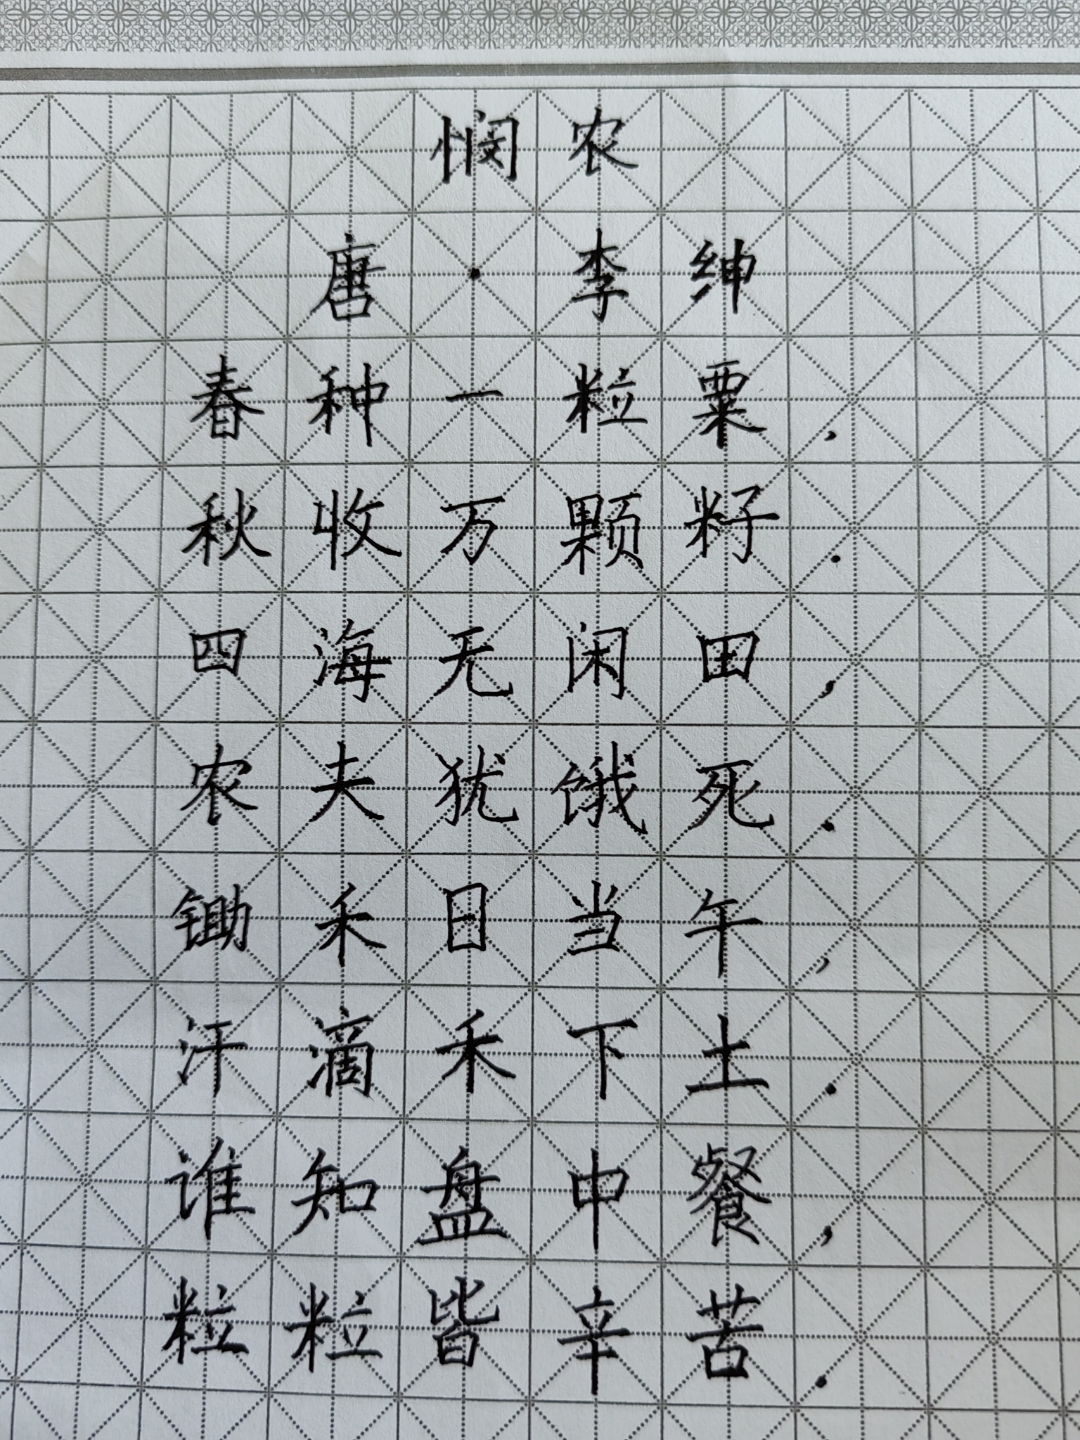 悯农
唐·李绅
春种一粒粟,
秋收万颗籽.
四海无闲田,
农夫犹饿死.
锄禾日当午,
汗滴禾下土.
谁知盘中餐,
粒粒皆辛苦.